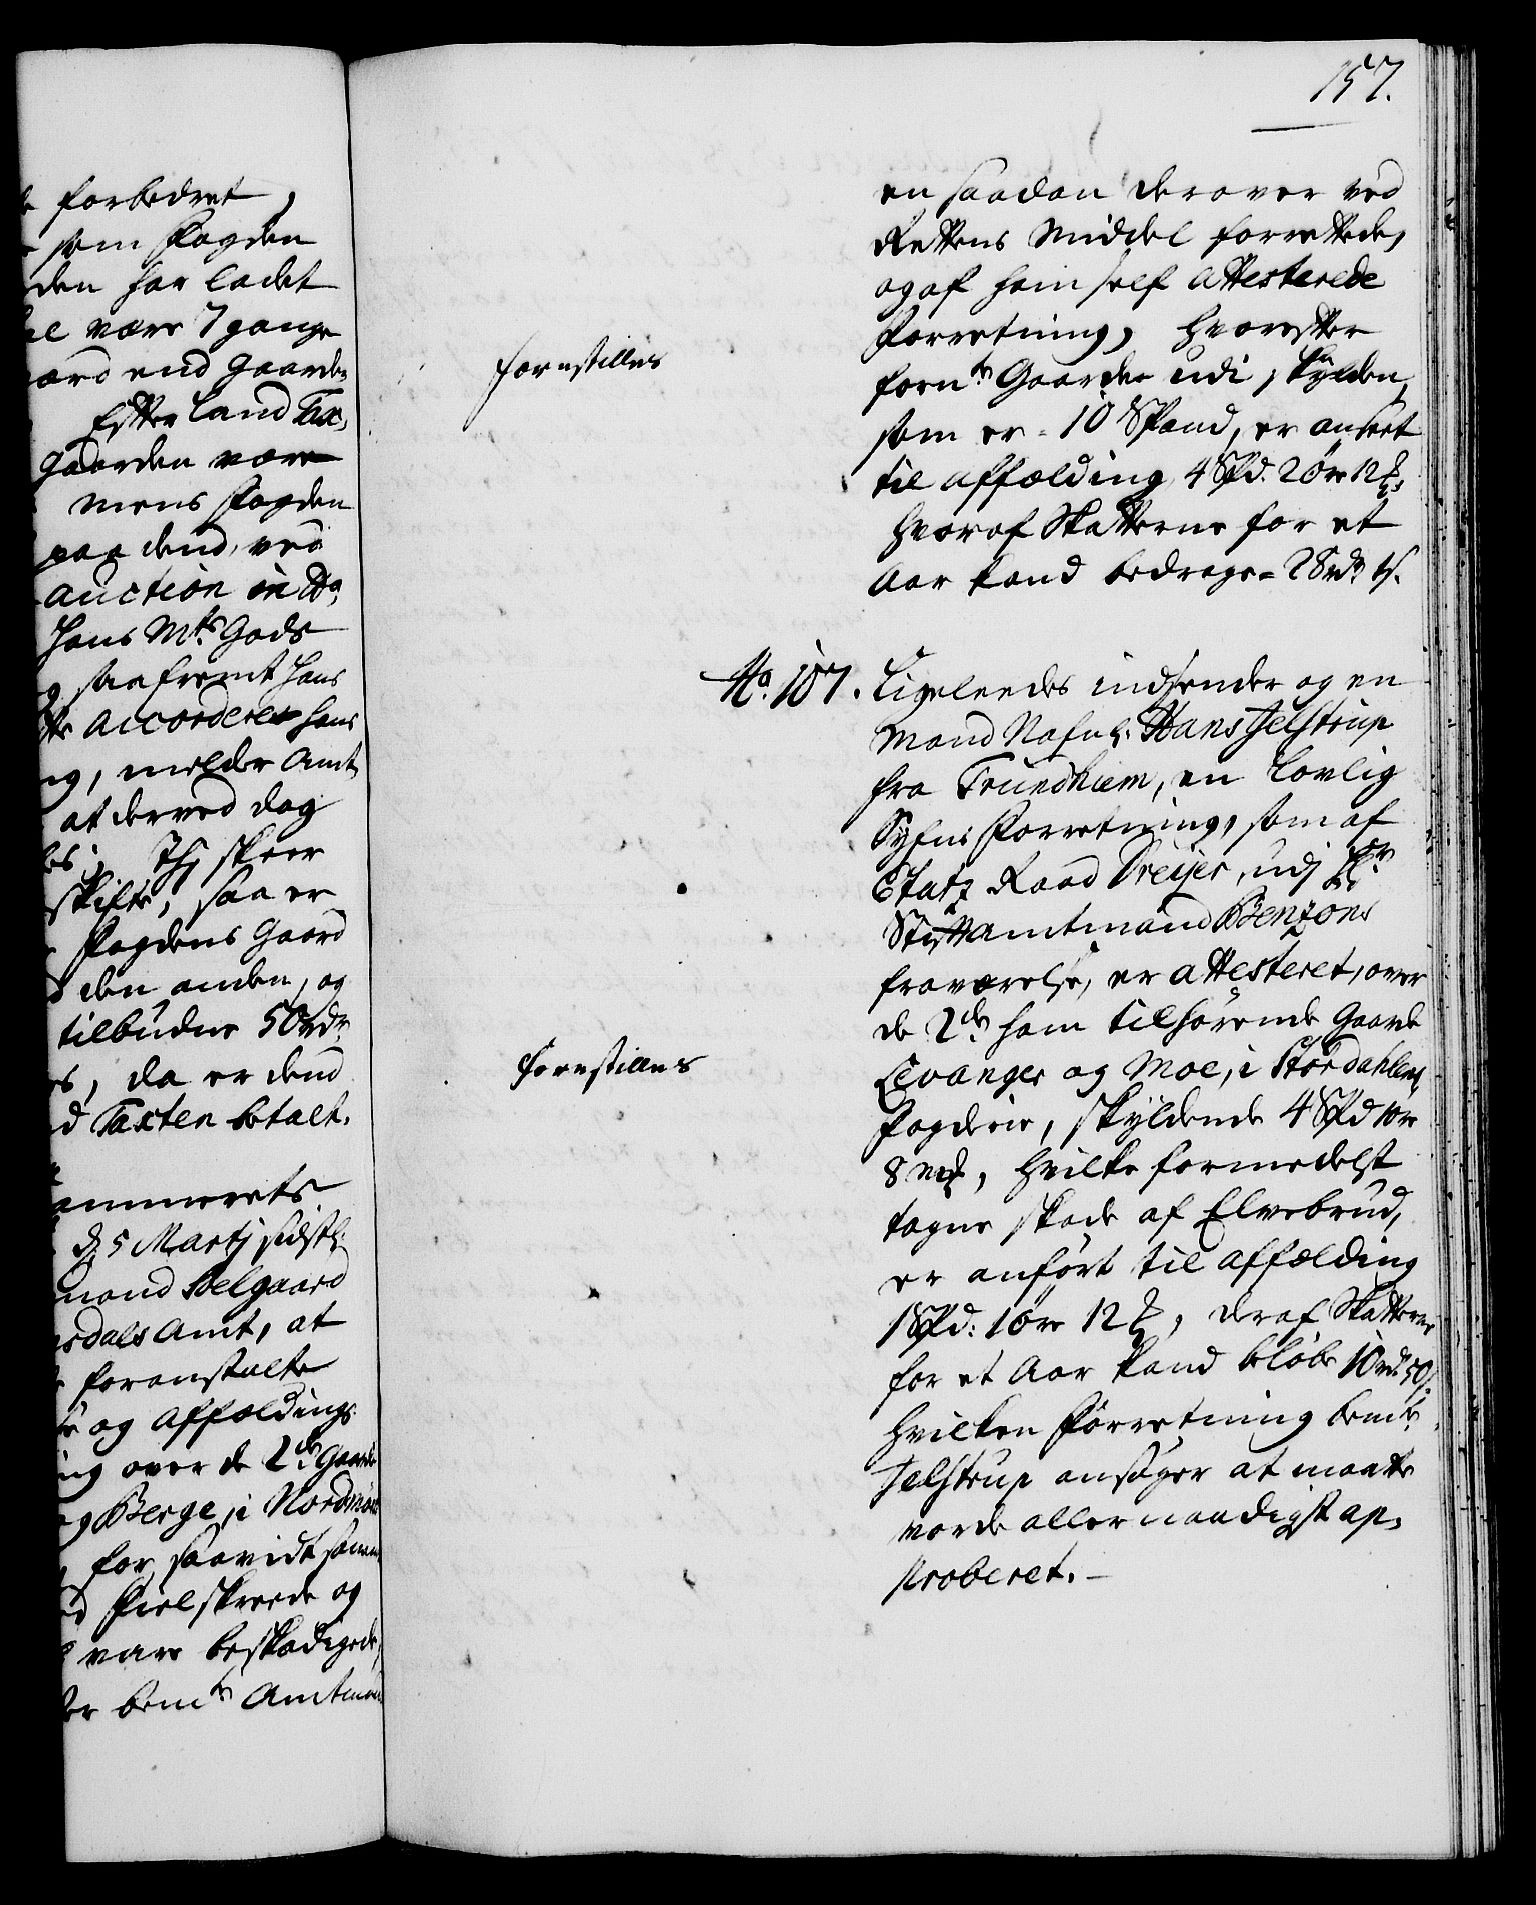 157.
forbedret,
som Fogden
den har ladet
være 7 gange
end Gaarden
Efter Land Tax,
Gaarden være
mens Fogden
paa dend, ved
Auction
Hans Mts Gods
saafremt hans
accorderes hans
melder Amt,
at derved dog
Thj skeer
skifte, saa er
Fogdens Gaard
den anden, og
tilbudne 50 rdr
da er dend
Taxten betalt.
ammerets
d. 5 Martj sidstl:
mand Kelgaard
sdals Amt, at
foranstalte
og Affældings
ing over de 2de Gaarde
og Berge, i Nordmør
for saavidt
Fielskreede og
vare beskadigede,
bemte Amtman
en saadan derover ved
Rettens Middel forrettede,
og af ham self attesterede
Forretning, hvorefter
fornte Gaarde udi Skylden,
som er 10 Spand, er anseet
til affælding 4 Spd. 2 öre 12
hvoraf Skatterne for et
Aar kand bedrage 28 rdr
forestilles
No. 107. Ligeleedes indsender og en
Mand Nafnl. Hans Jelstrup
fra Trundhiem, en Lovlig
Syfns Forretning, som af
Etatz Raad Dreijer, udj Hr
Stiftamtmand Benzons
fraværelse, er attesteret, over
de 2de ham tilhörende Gaarde
Levanger og Moe, i Stördahlens
Fogderie, skyldende 4 Spd 1 öre
8 , hvilke formedelst
tagne skade af Elvebrud,
er anfört til affælding
1 Spd: 1 öre 12 , deraf Skatterne
for et Aar kand belöbe 10 rd. 50 s.
hvilken Forretning bemte
Jelstrup ansöger at maatte
vorde allernaadigst ap-
proberet.
forestilles